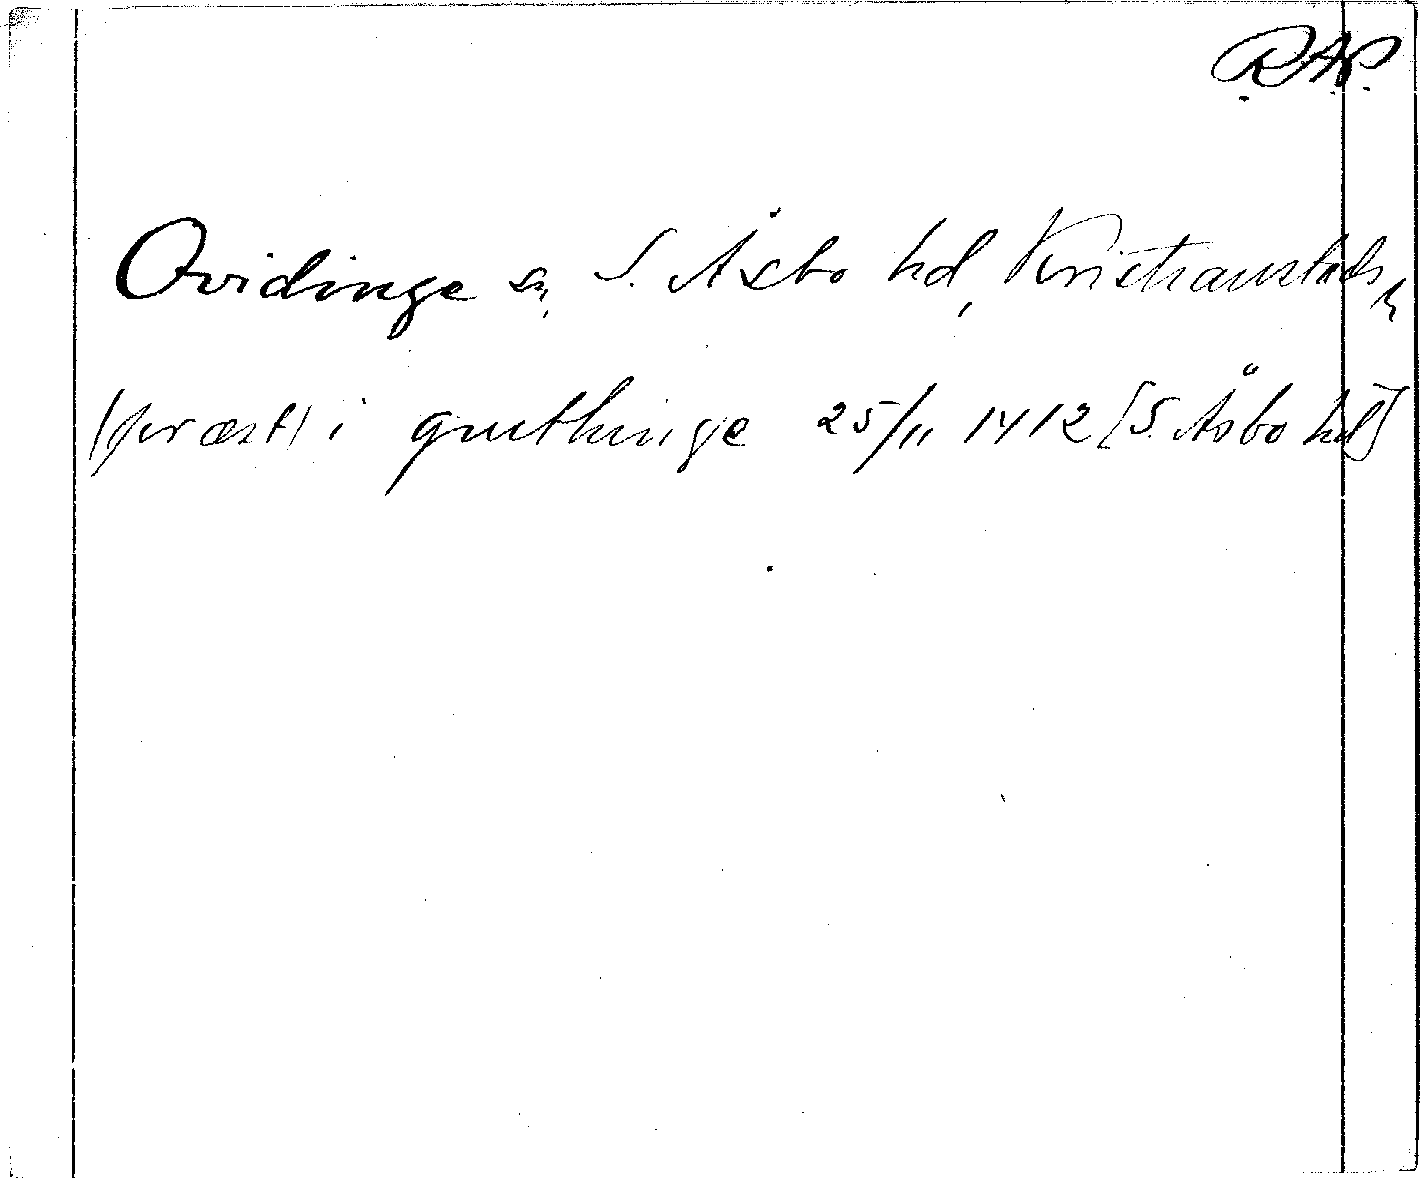 R.A.P.
Qvidinge sn, S. Åsbo hd, Kristianstads l.
(præst) i quithinge 25/11 1412 [S. Åsbo hd]